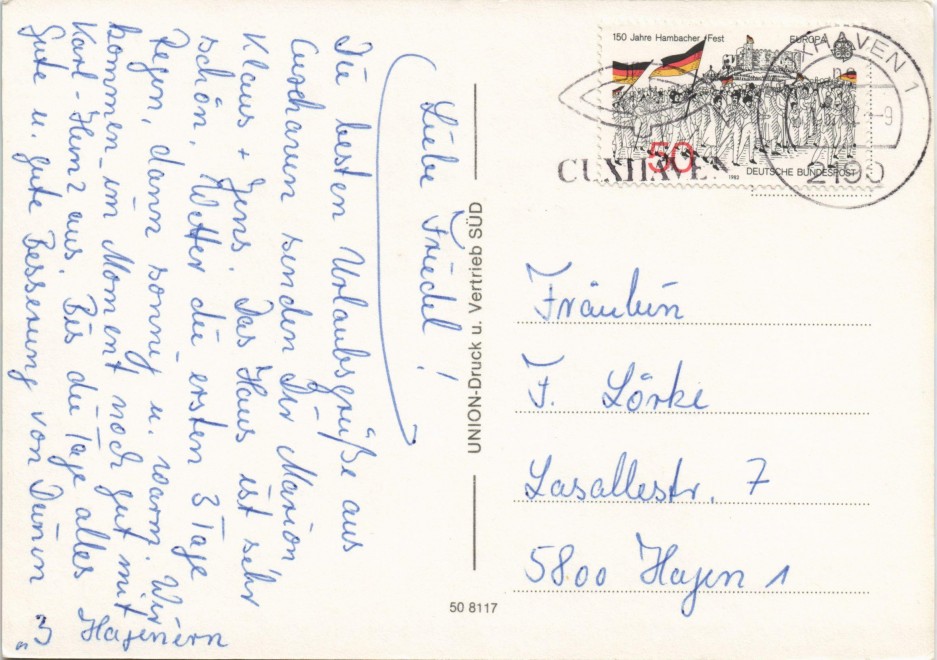 Liebe Friedel!
Die besten Urlaubsgrüße aus
Cuxhaven senden Dir Marion
Klaus + Jens. Das Haus ist sehr
schön. Wetter die ersten 3 Tage
Regen, dann sonnig u. warm. Wir
kommen im Moment noch gut mit
Karl-Heinz aus. Bis die Tage alles
Gute u. gute Besserung von Deinen
"3 Hagenern
UNION-Druck u. Vertrieb SÜD
50 8117
150 Jahre Hambacher Fest
EUROPA
50
1982
DEUTSCHE BUNDESPOST
CUXHAVEN
CUXHAVEN 1
-9
2190
Fräulein
F. Lörke
Lasallestr. 7
5800 Hagen 1